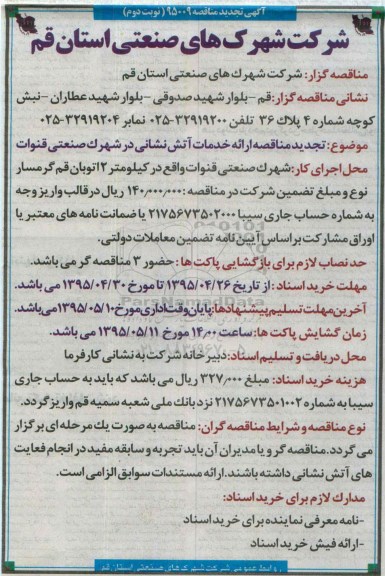 آگهی تجدید مناقصه ۰۹-۹۵ (نوبت دوم)
شرکت شهرک‌های صنعتی استان قم
مناقصه گزار: شرکت شهرک های صنعتی استان قم
نشانی مناقصه گزار: قم -بلوار شهید صدوقی -بلوار شهید عطاران -نبش
کوچه شماره ۴ پلاک ۳۶ تلفن ۳۲۹۱۹۲۰۰-۰۲۵ نمابر ۳۲۹۱۹۲۰۴-۰۲۵
موضوع: تجدید مناقصه ارائه خدمات آتش نشانی در شهرک صنعتی قنوات
محل اجرای کار: شهرک صنعتی قنوات واقع در کیلومتر ۱۲ اتوبان قم گرمسار
نوع و مبلغ تضمین شرکت در مناقصه: ۱۴۰/۰۰۰/۰۰۰ ریال در قالب واریز وجه
به شماره حساب جاری سیبا ۲۱۷۵۶۷۳۵۰۲۰۰۰ یا ضمانت نامه های معتبر یا
اوراق مشارکت بر اساس آیین نامه تضمین معاملات دولتی.
حد نصاب لازم برای بازگشایی پاکت ها: حضور ۳ مناقصه گر می باشد.
مهلت خرید اسناد: از تاریخ ۱۳۹۵/۰۴/۲۶ تا مورخ ۱۳۹۵/۰۴/۳۰ می باشد.
آخرین مهلت تسلیم پیشنهادها: پایان وقت اداری مورخ ۱۳۹۵/۰۵/۱۰ می باشد.
زمان گشایش پاکت ها: ساعت ۱۴/۰۰ مورخ ۱۳۹۵/۰۵/۱۱ می باشد.
محل دریافت و تسلیم اسناد: دبیرخانه شرکت به نشانی کارفرما
هزینه خرید اسناد: مبلغ ۳۲۷/۰۰۰ ریال می باشد که باید به حساب جاری
سیبا به شماره ۲۱۷۵۶۷۳۵۰۱۰۰۲ نزد بانک ملی شعبه سمیه قم واریز گردد.
نوع مناقصه و شرایط مناقصه گران: مناقصه به صورت یک مرحله ای برگزار
می گردد. مناقصه گر و یا مدیران آن باید تجربه و سابقه مفید در انجام فعالیت
های آتش نشانی داشته باشند. ارائه مستندات سوابق الزامی است.
مدارک لازم برای خرید اسناد:
-نامه معرفی نماینده برای خرید اسناد
-ارائه فیش خرید اسناد
روابط عمومی شرکت شهرک های صنعتی استان قم